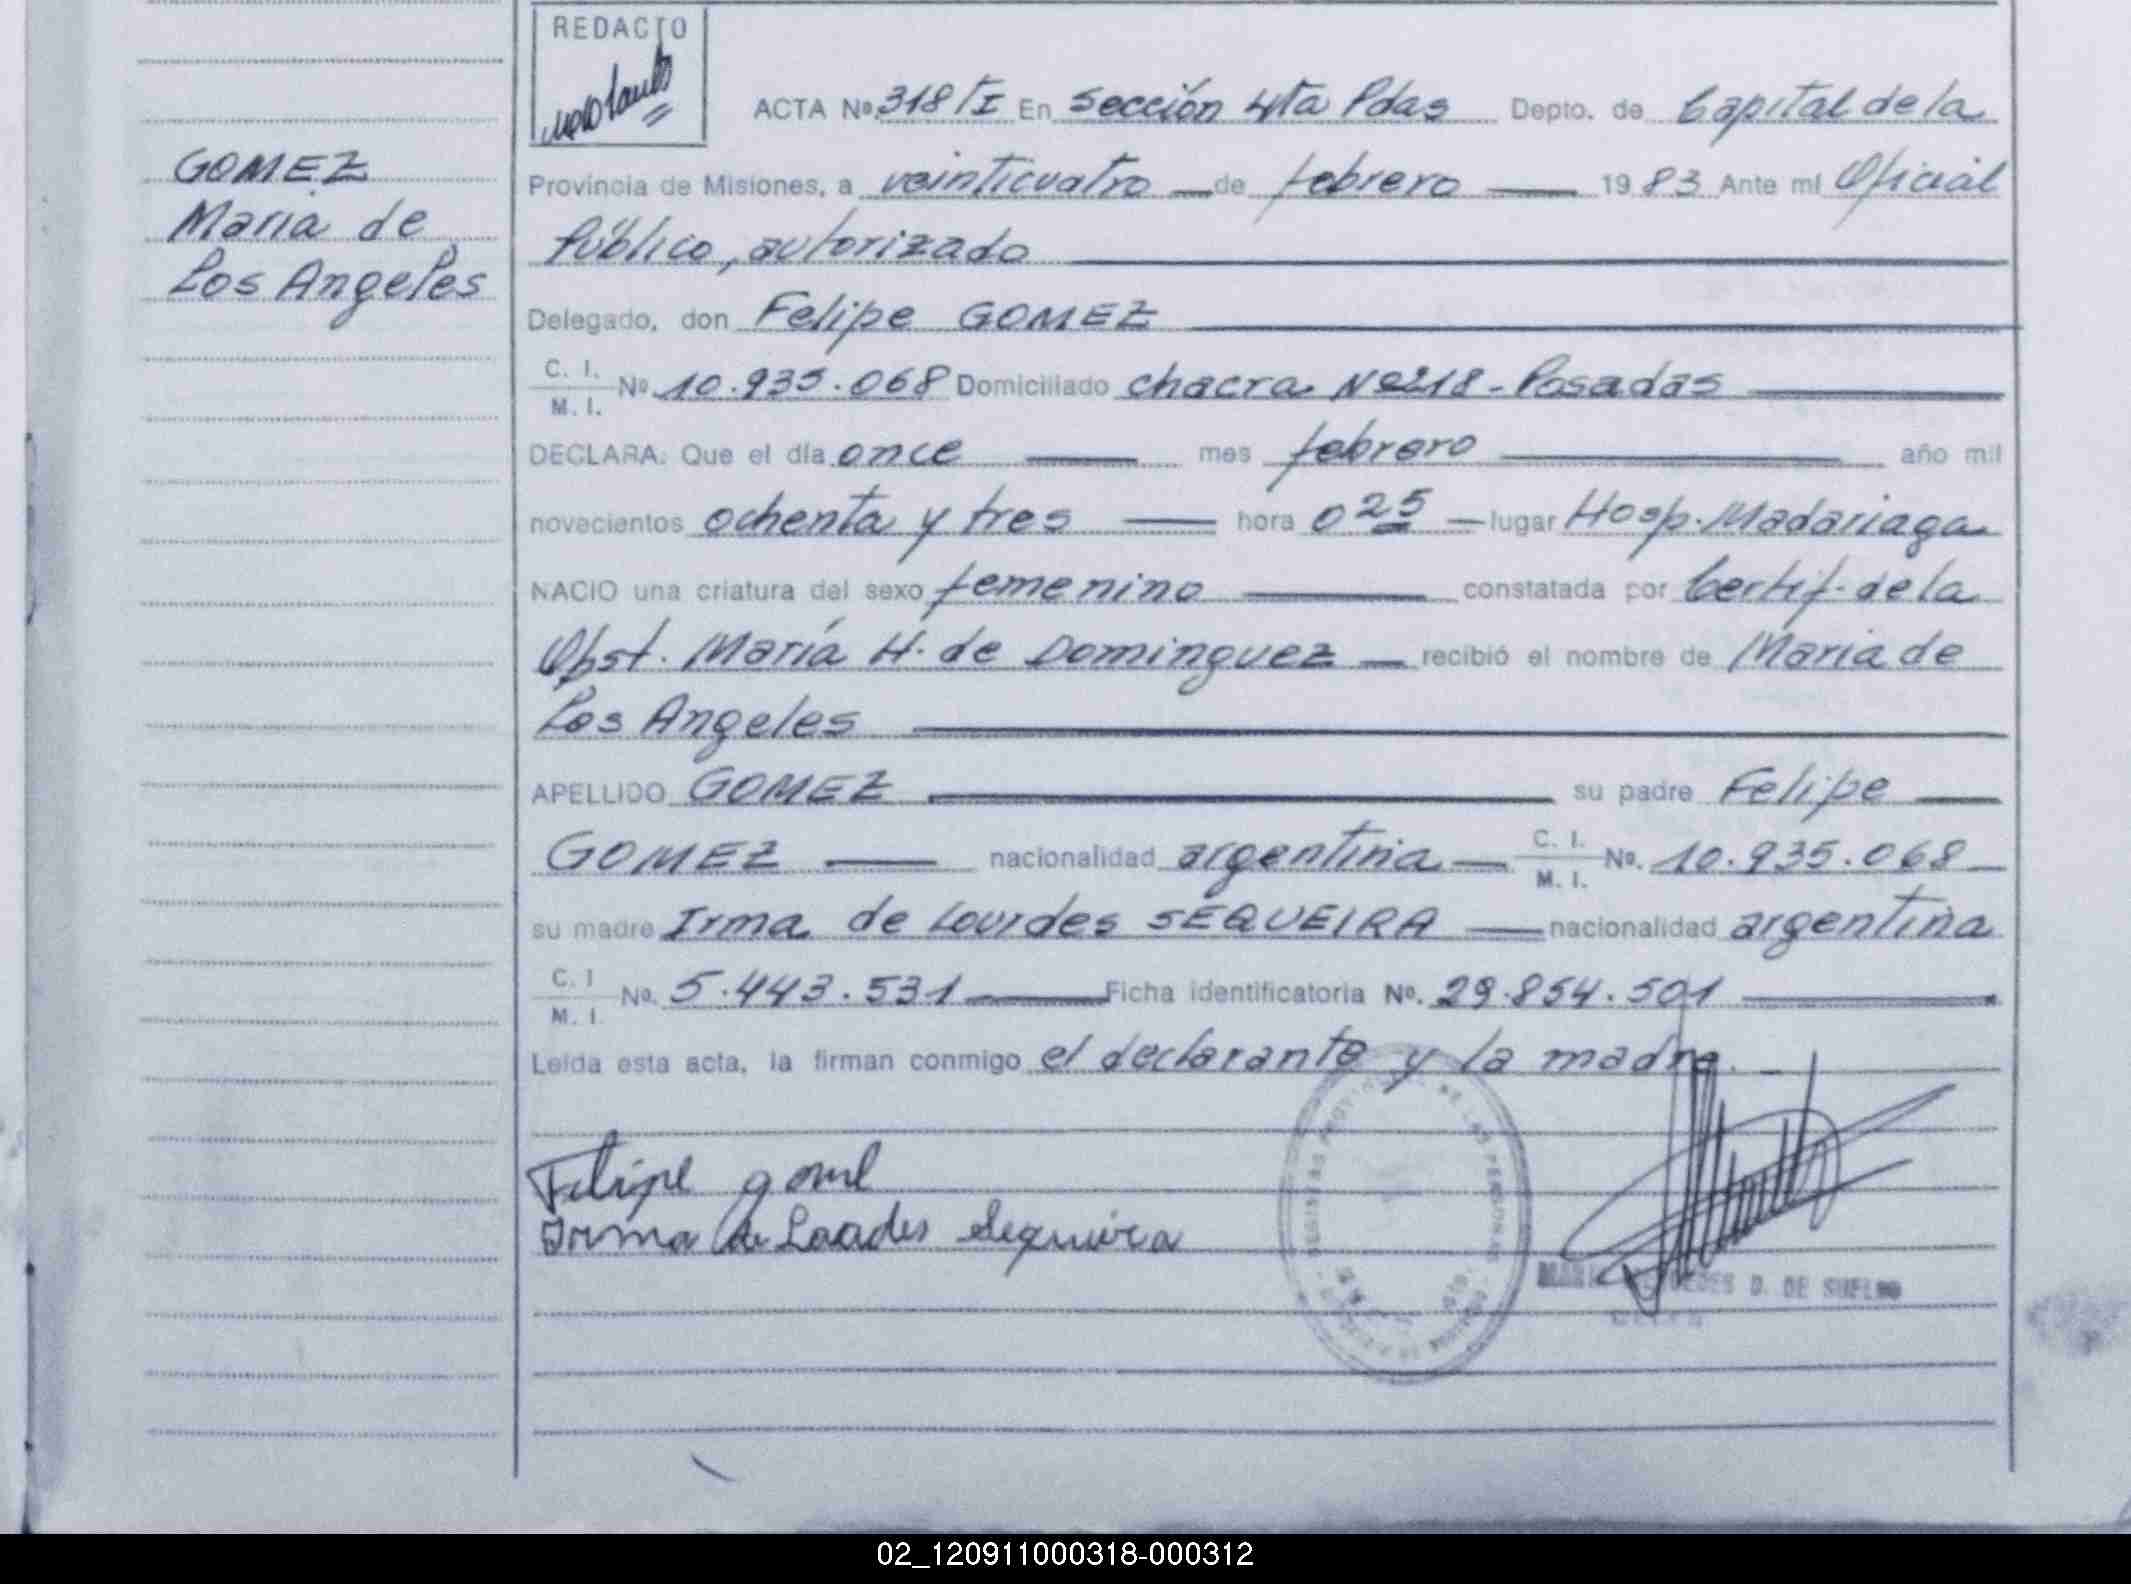 REDACTO
ACTA Nº 318/I En Sección 4ta Pdas Depto. de Capital de la
GOMEZ
Maria de
Los Angeles
Provincia de Misiones, a veinticuatro de febrero 1983 Ante mí Oficial
Público, autorizado
Delegado, don Felipe GOMEZ
C. I.
M. I. Nº 10.935.068 Domiciliado chacra Nº 218 - Posadas
DECLARA: Que el día once mes febrero año mil
novecientos ochenta y tres hora 0 25 lugar Hosp. Madariaga
NACIO una criatura del sexo femenino constatada por Certif. de la
Obst. María H. de Dominguez recibió el nombre de Maria de
Los Angeles
APELLIDO GOMEZ su padre Felipe
GOMEZ nacionalidad argentina C. I. M. I. Nº. 10.935.068
su madre Irma de Lourdes SEQUEIRA nacionalidad argentina
C. I M. I. Nº. 5.443.531 Ficha identificatoria Nº. 29.854.501
Leída esta acta, la firman conmigo el declarante y la madre.
Felipe
Irma de Loades Sequiera
D. DE SUELDO
02_120911000318-000312